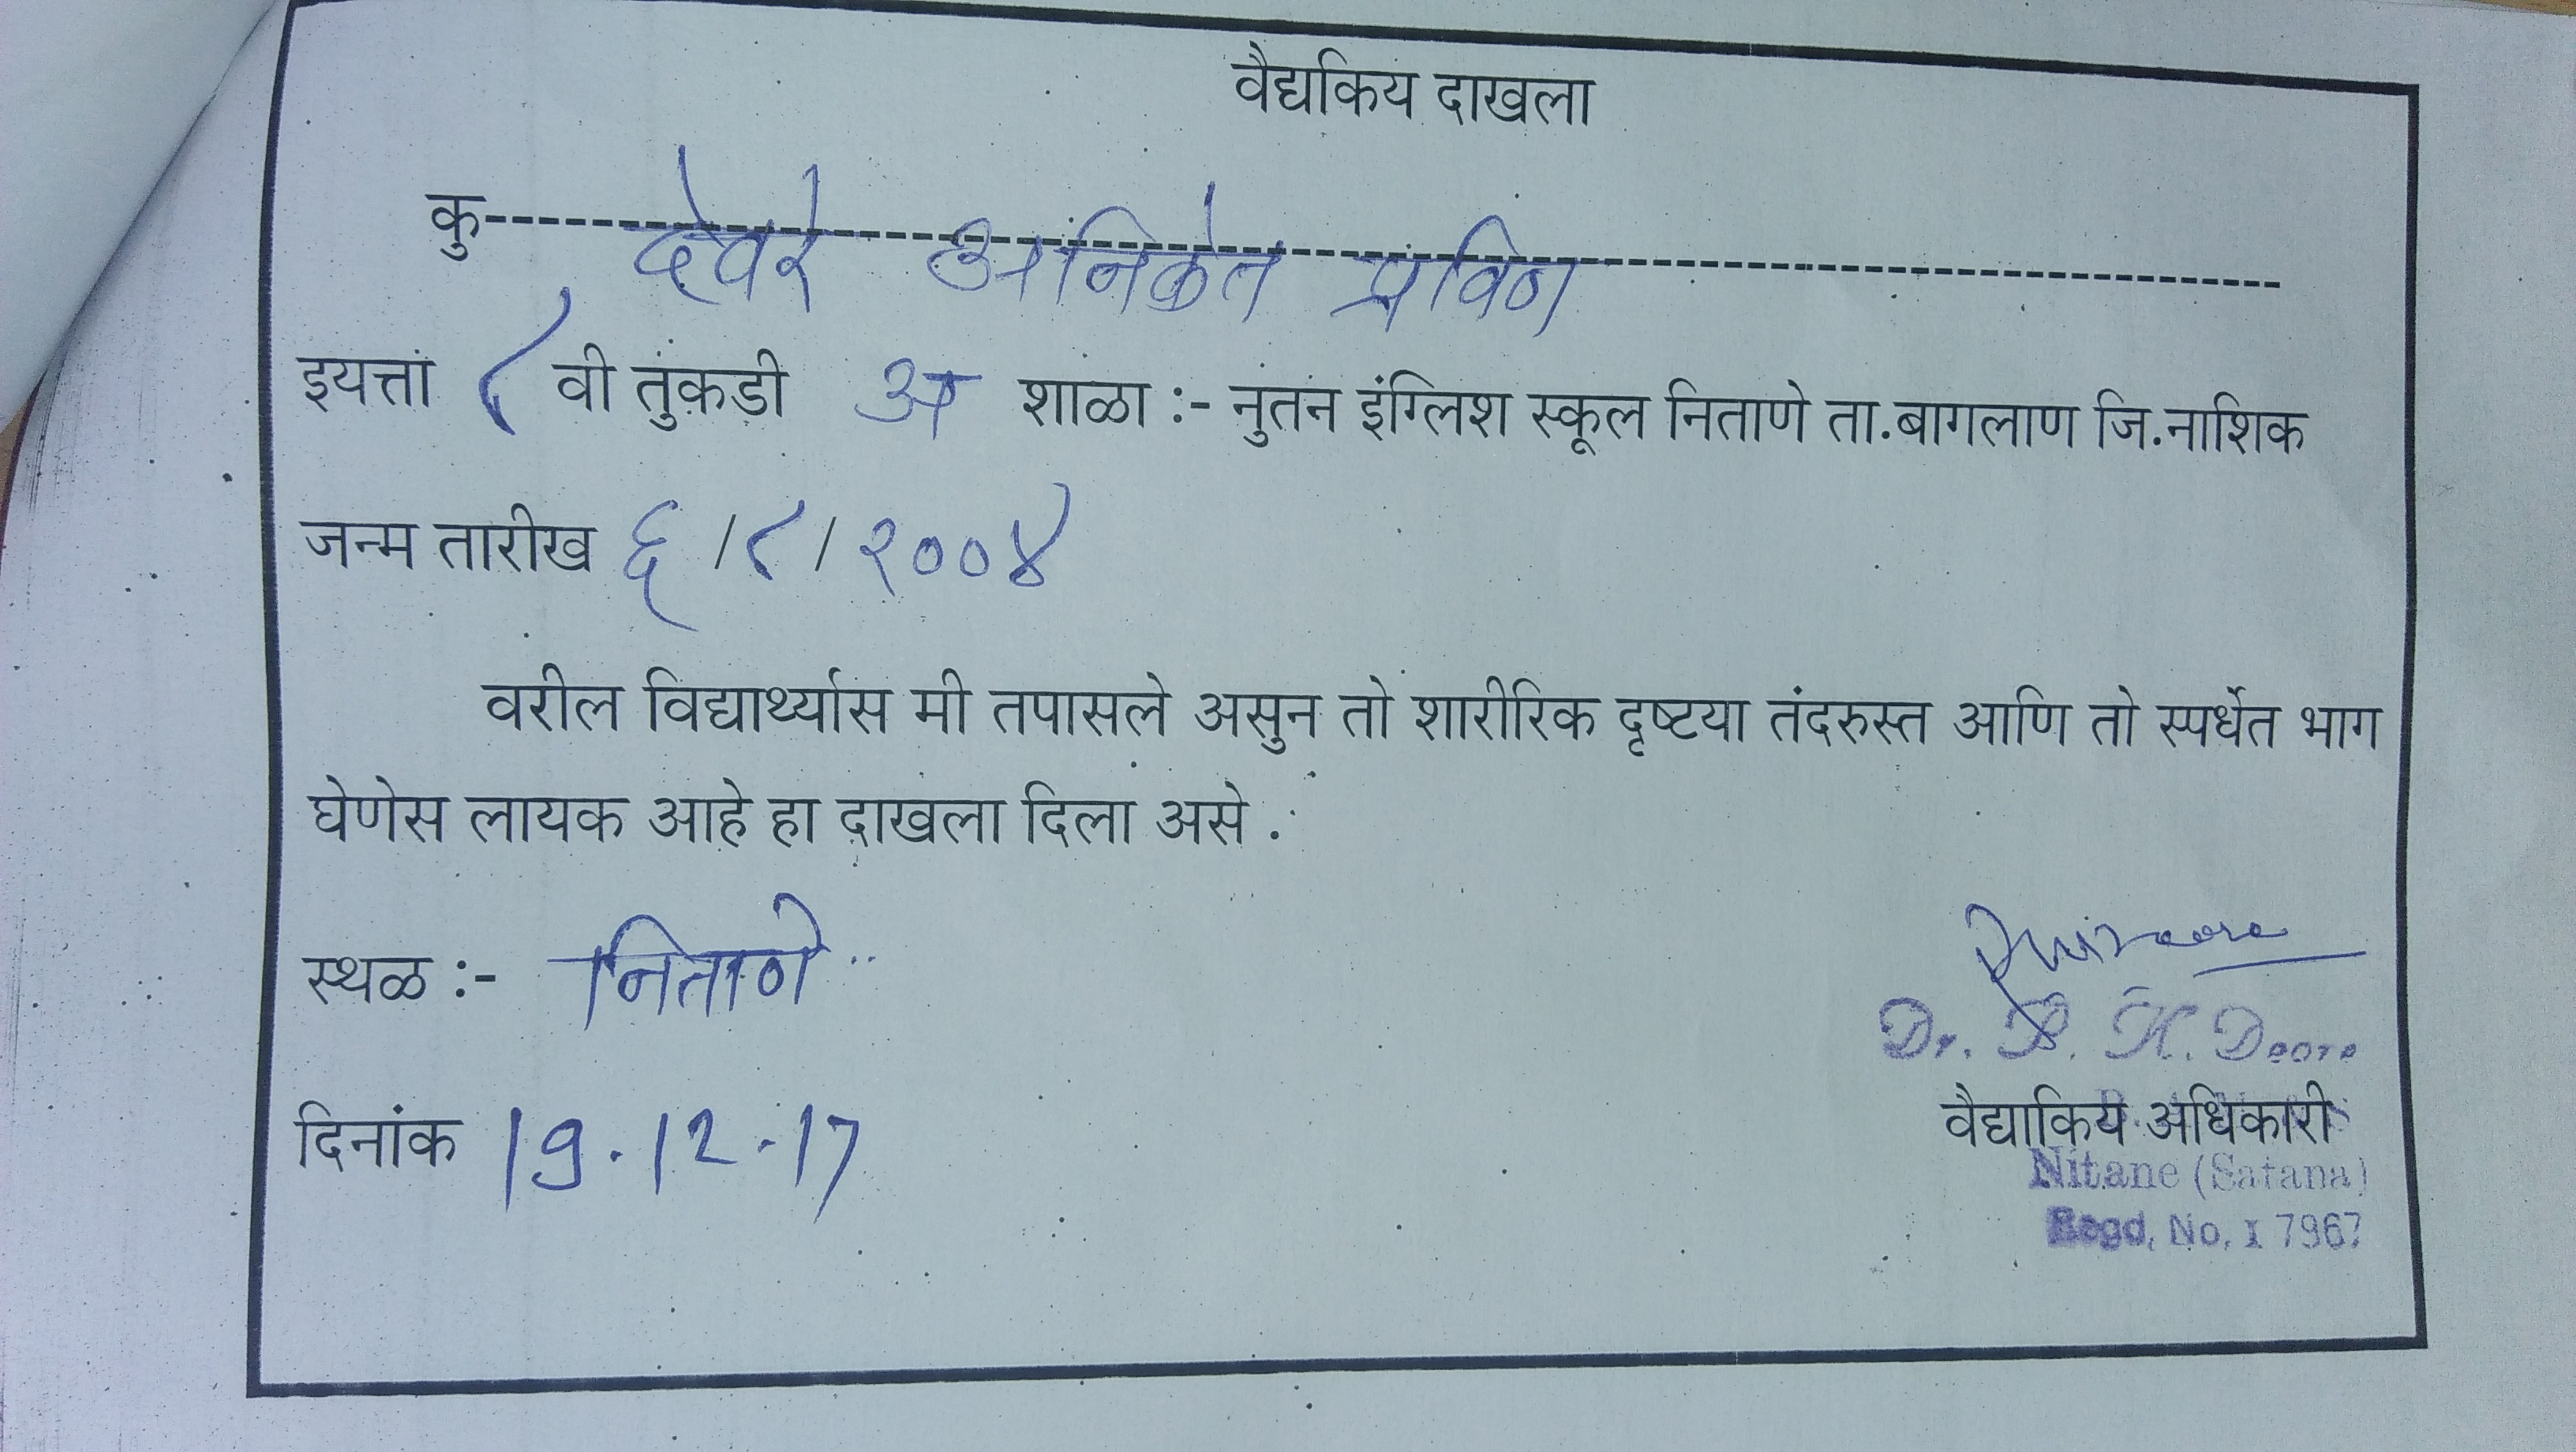 वैद्यकिय दाखला
कु देवरे अनिकेत प्रविण
इयत्ता ८ वी तुकडी अ शाळा :- नुतन इंग्लिश स्कूल निताणे ता.बागलाण जि.नाशिक
जन्म तारीख ६/८/२००४
वरील विद्यार्थ्यास मी तपासले असुन तो शारीरिक दृष्टया तंदरुस्त आणि तो स्पर्धेत भाग
घेणेस लायक आहे हा दाखला दिला असे .
स्थळ :- निताणे
Dr. B. K. Deore
दिनांक 19.12.17
वैद्याकिय अधिकारी
Nitane (Satana)
Regd. No. I 7967